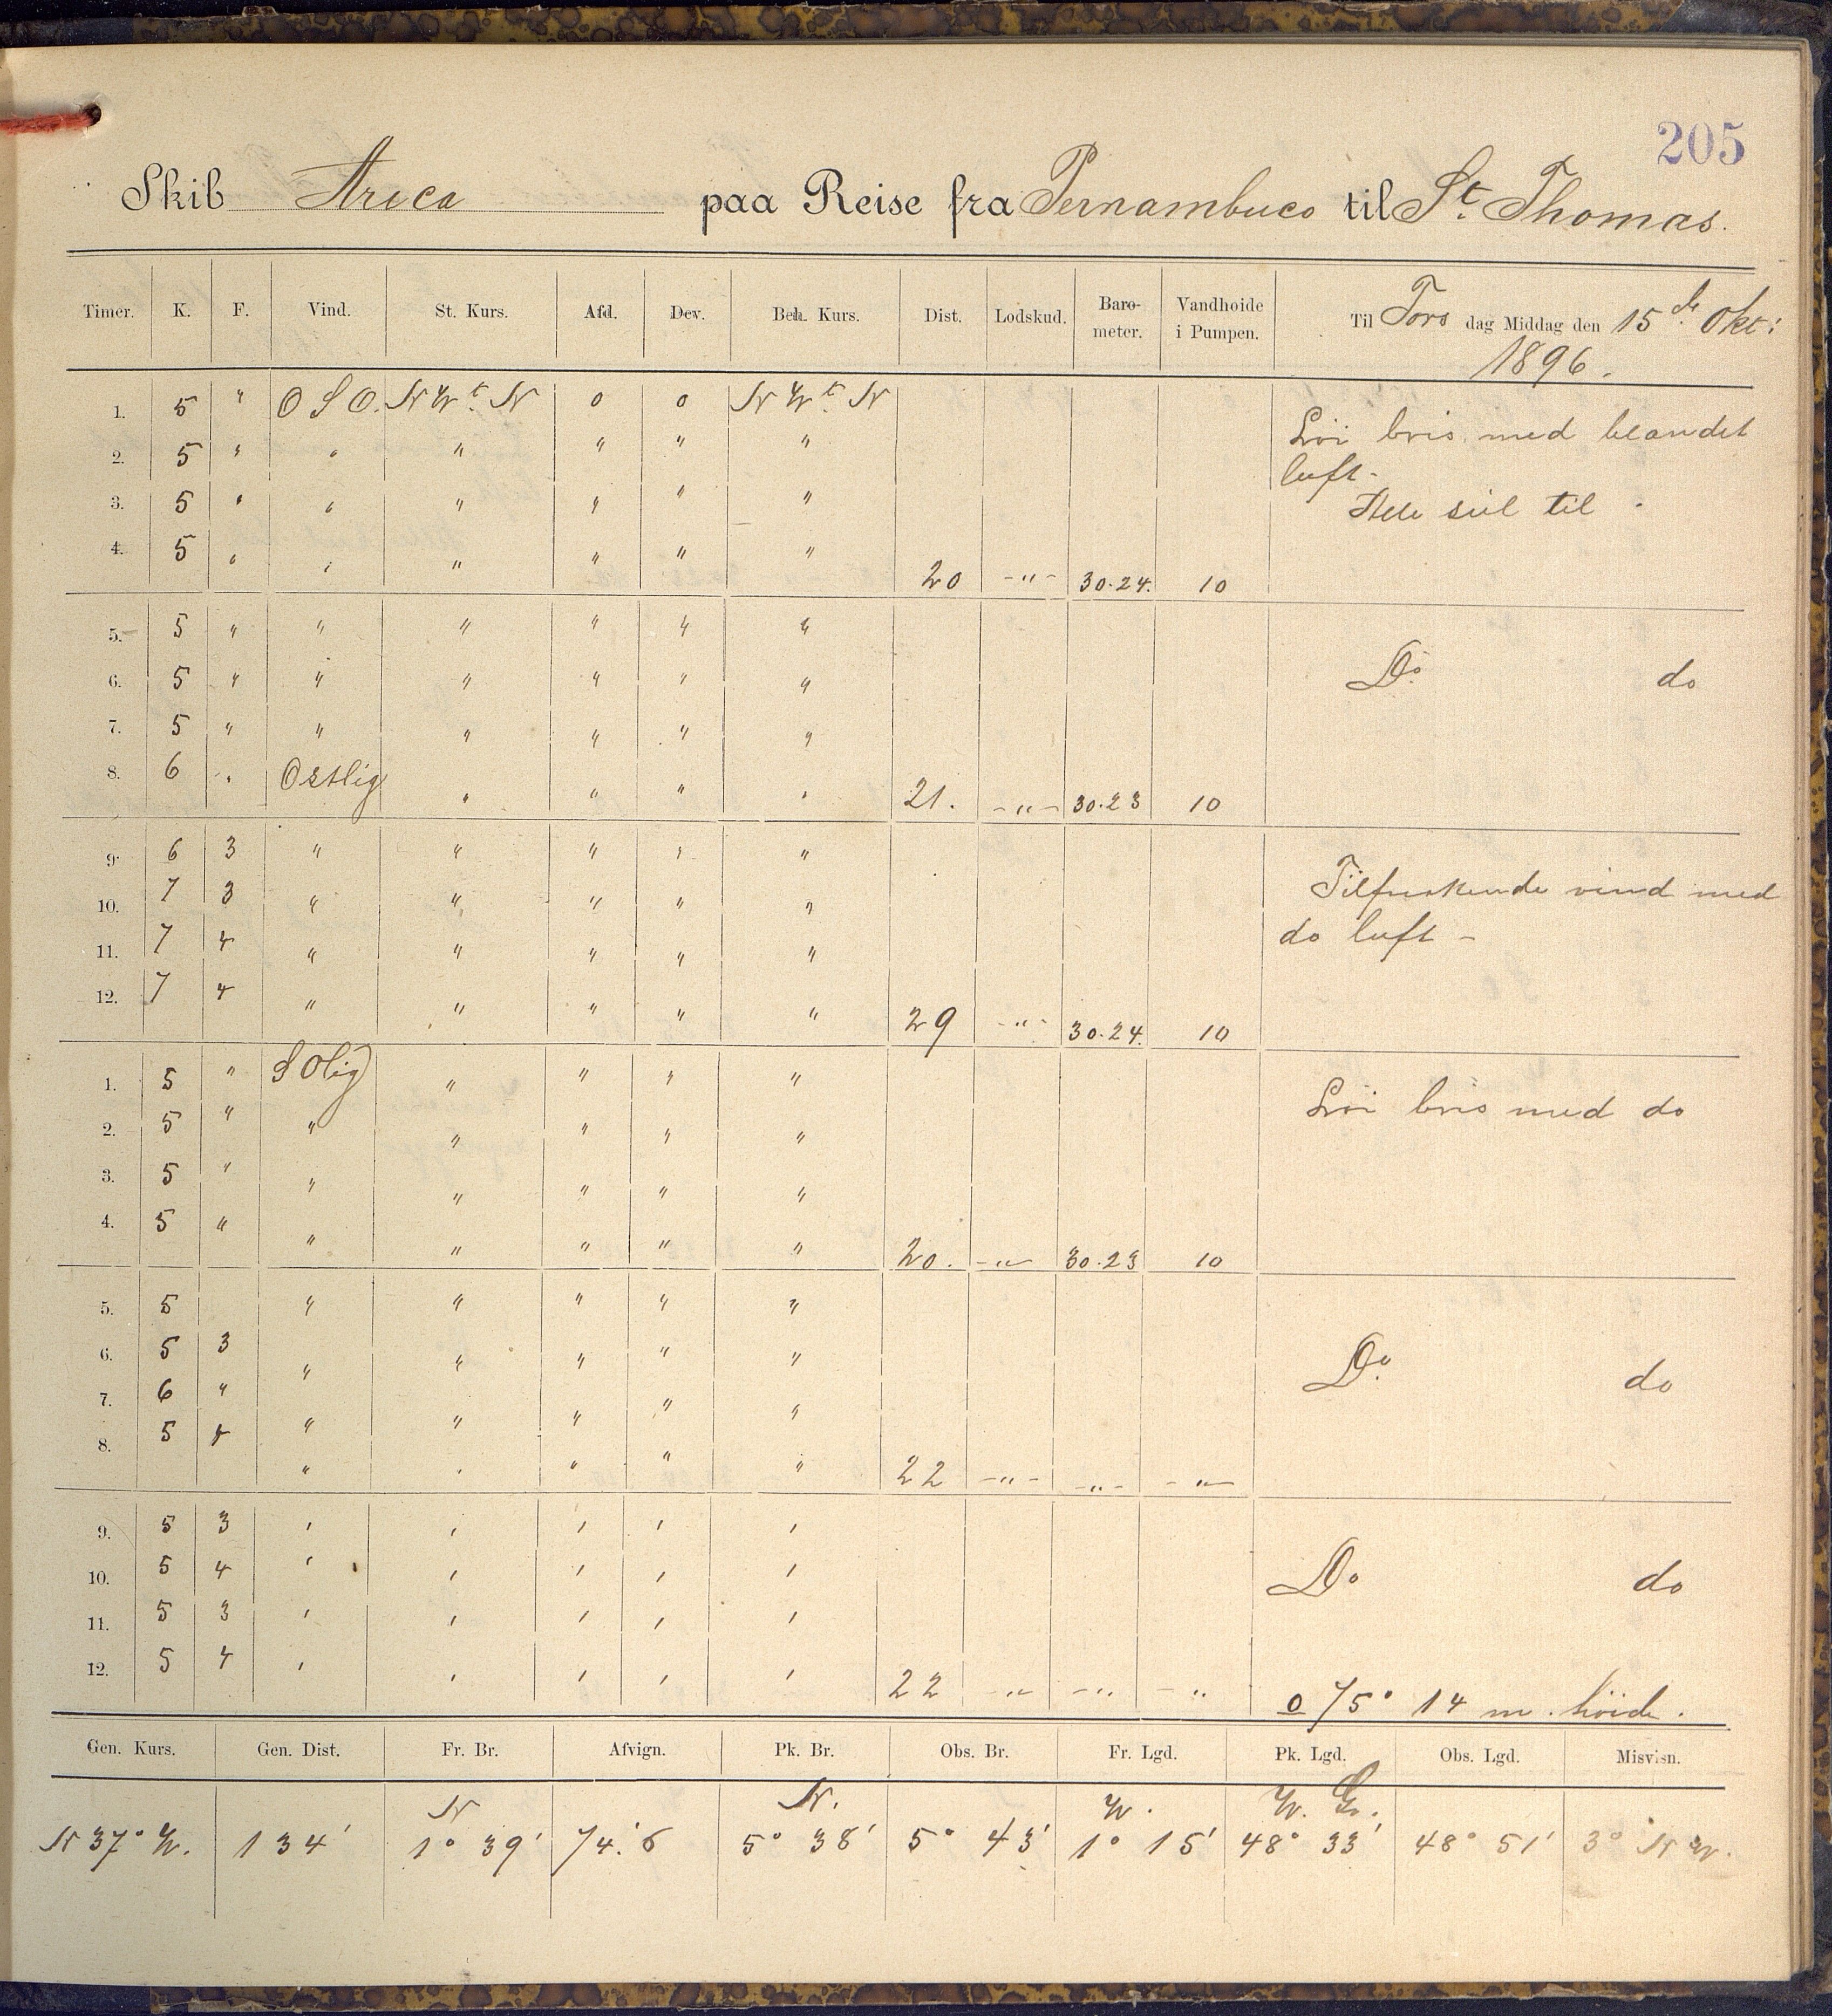 205
Skib Areca paa Reise fra Pernambuco til St. Thomas.
Timer. K. F. Vind. St. Kurs. Afd. Dev. Beh. Kurs. Dist. Lodskud. Baro-meter. Vandhoide i Pumpen. Til Tors dag Middag den 15de Okt: 1896.
1. 5 " O S O. N W t. N 0 0 N W t. N
Löi bris med blandet
2. 5 " " " " " "
luft -
3. 5 " " " " " "
Alle seil til -
4. 5 " " " " " " 20 -"- 30.24. 10
5. 5 " " " " " "
6. 5 " " " " " " Do. do
7. 5 " " " " " "
8. 6 " Ostlig " " " " 21. -"- 30.23 10
9. 6 3 " " " " "
10. 7 3 " " " " " Tilfriskende vind med
11. 7 4 " " " " " do luft -
12. 7 4 " " " " " 29 -"- 30.24. 10
1. 5 " S Olig " " " "
2. 5 " " " " " " Löi bris med do
3. 5 " " " " " "
4. 5 " " " " " " 20. -"- 30.23 10
5. 5 " " " " "
6. 5 3 " " " " " Do. do
7. 6 " " " " " "
8. 5 4 " " " " " 22 -"- -"- -"-
9. 5 3 " " " " "
10. 5 4 " " " " " Do do
11. 5 3 " " " " "
12. 5 4 " " " " " 22 -"- -"- -"
o 75° 14 m. höide.
Gen. Kurs. Gen. Dist. Fr. Br. Afvign. Pk. Br. Obs. Br. Fr. Lgd. Pk. Lgd. Obs. Lgd. Misvisn.
N N. W. W. Gr.
N 37° W. 134' 1° 39' 74.'6 5° 38' 5° 43' 1° 15' 48° 33' 48° 51' 3° N W.